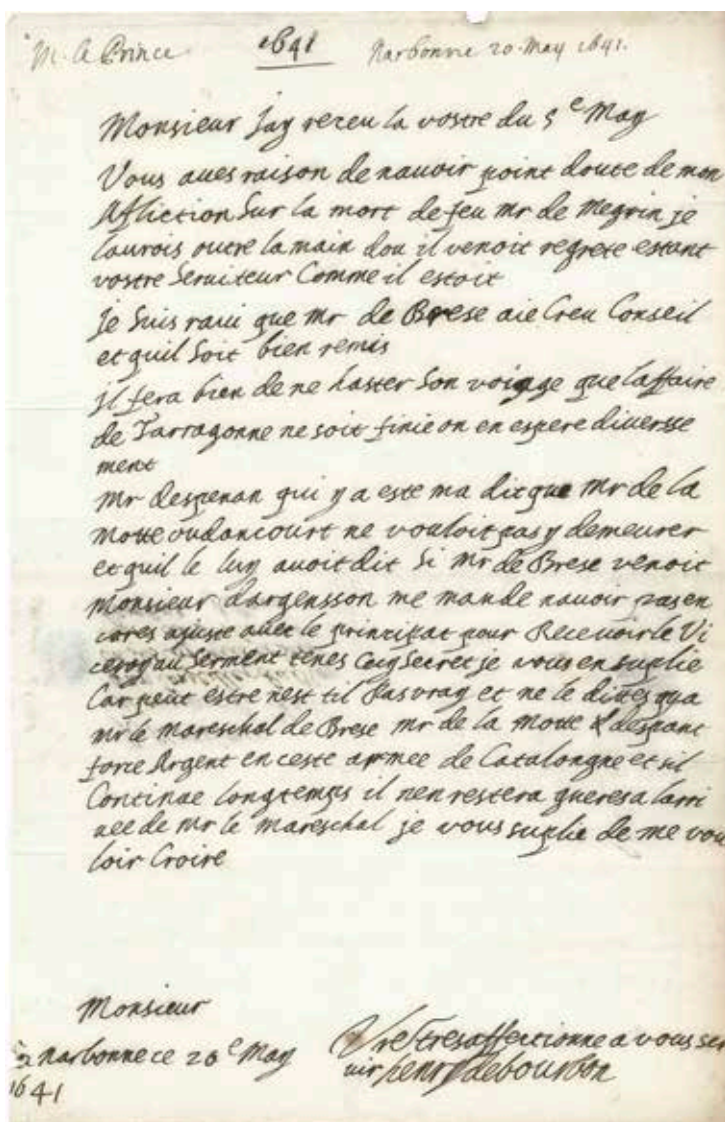 M. le Prince 1641 Narbonne 20. May 1641.
Monsieur Jay receu la vostre du 5e May
Vous aues raison de nauoir point doute de mon
Afliction Sur la mort de feu Mr de Megrin je
laurois outre la main dou il venoit regrete estant
vostre Seruiteur Comme il estoit
Je Suis raui que Mr de Brese aie Creu Conseil
et quil Soit bien remis
jl fera bien de ne haster Son voiage que laffaire
de Tarragonne ne soit finie on en espere diuersse
ment
Mr despenan qui y a este ma dit que Mr de la
Motte oudancourt ne vouloit pas y demeurer
et quil le luy auoit dit Si Mr de Brese venoit
Monsieur dargensson me mande nauoir pas en
cores ajuste auec le principat pour Receuoir le Vi
ceroy au Serment tenes Cecy Secret je vous en suplie
Car peut estre nest til Pas vray et ne le dittes qua
Mr le Mareschal de Brese Mr de la Motte despant
force Argent en ceste armee de Catalongne et sil
Continue longtemps il nen restera gueres a larri
uee de Mr le Mareschal je vous suplie de me vou
loir Croire
Monsieur
a Narbonne ce 20e May
1641
Vre Tres affectionne a vous ser
uir henry de bourbon